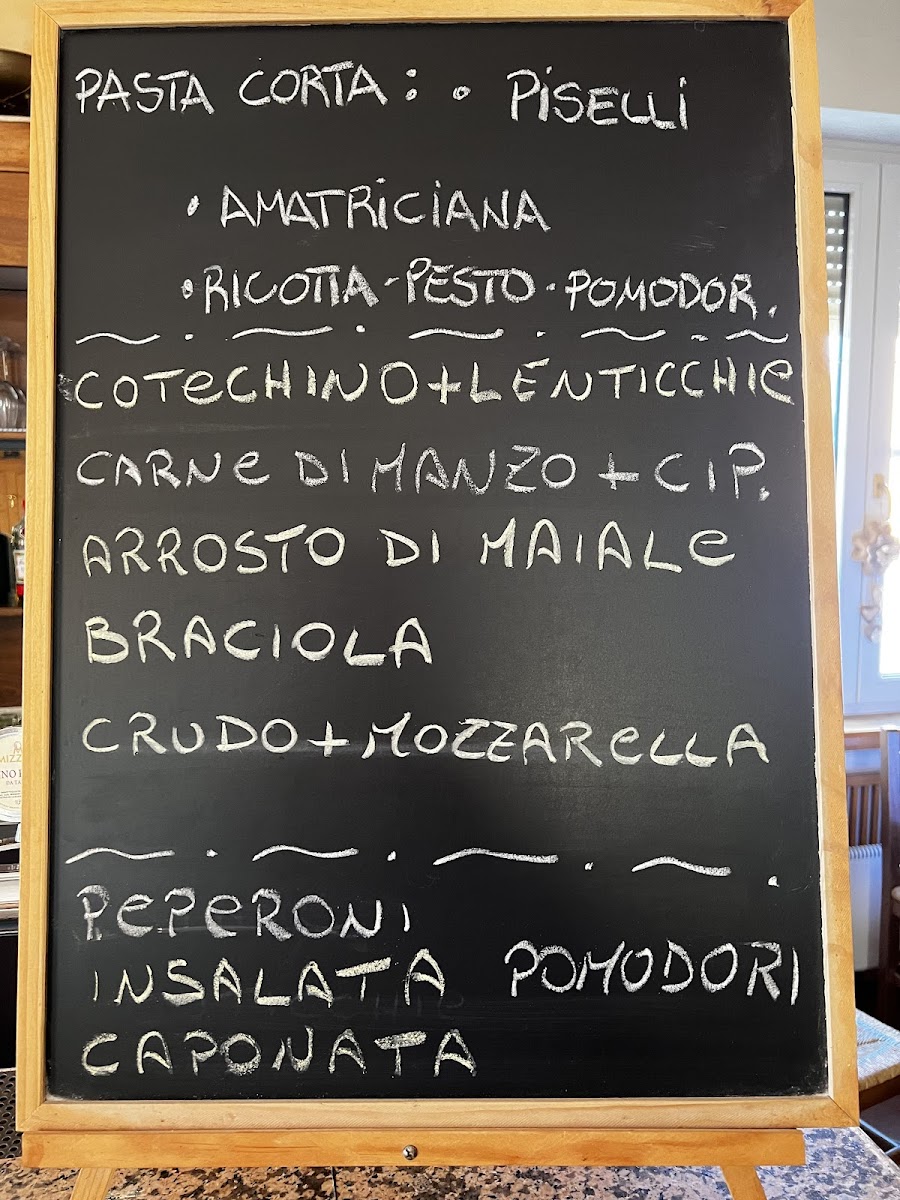 PASTA CORTA: • PISELLI
• AMATRICIANA
• RICOTTA - PESTO - POMODOR.
COTECHINO + LENTICCHIE
CARNE DI MANZO + CIP.
ARROSTO DI MAIALE
BRACIOLA
CRUDO + MOZZARELLA
PEPERONI
INSALATA POMODORI
CAPONATA